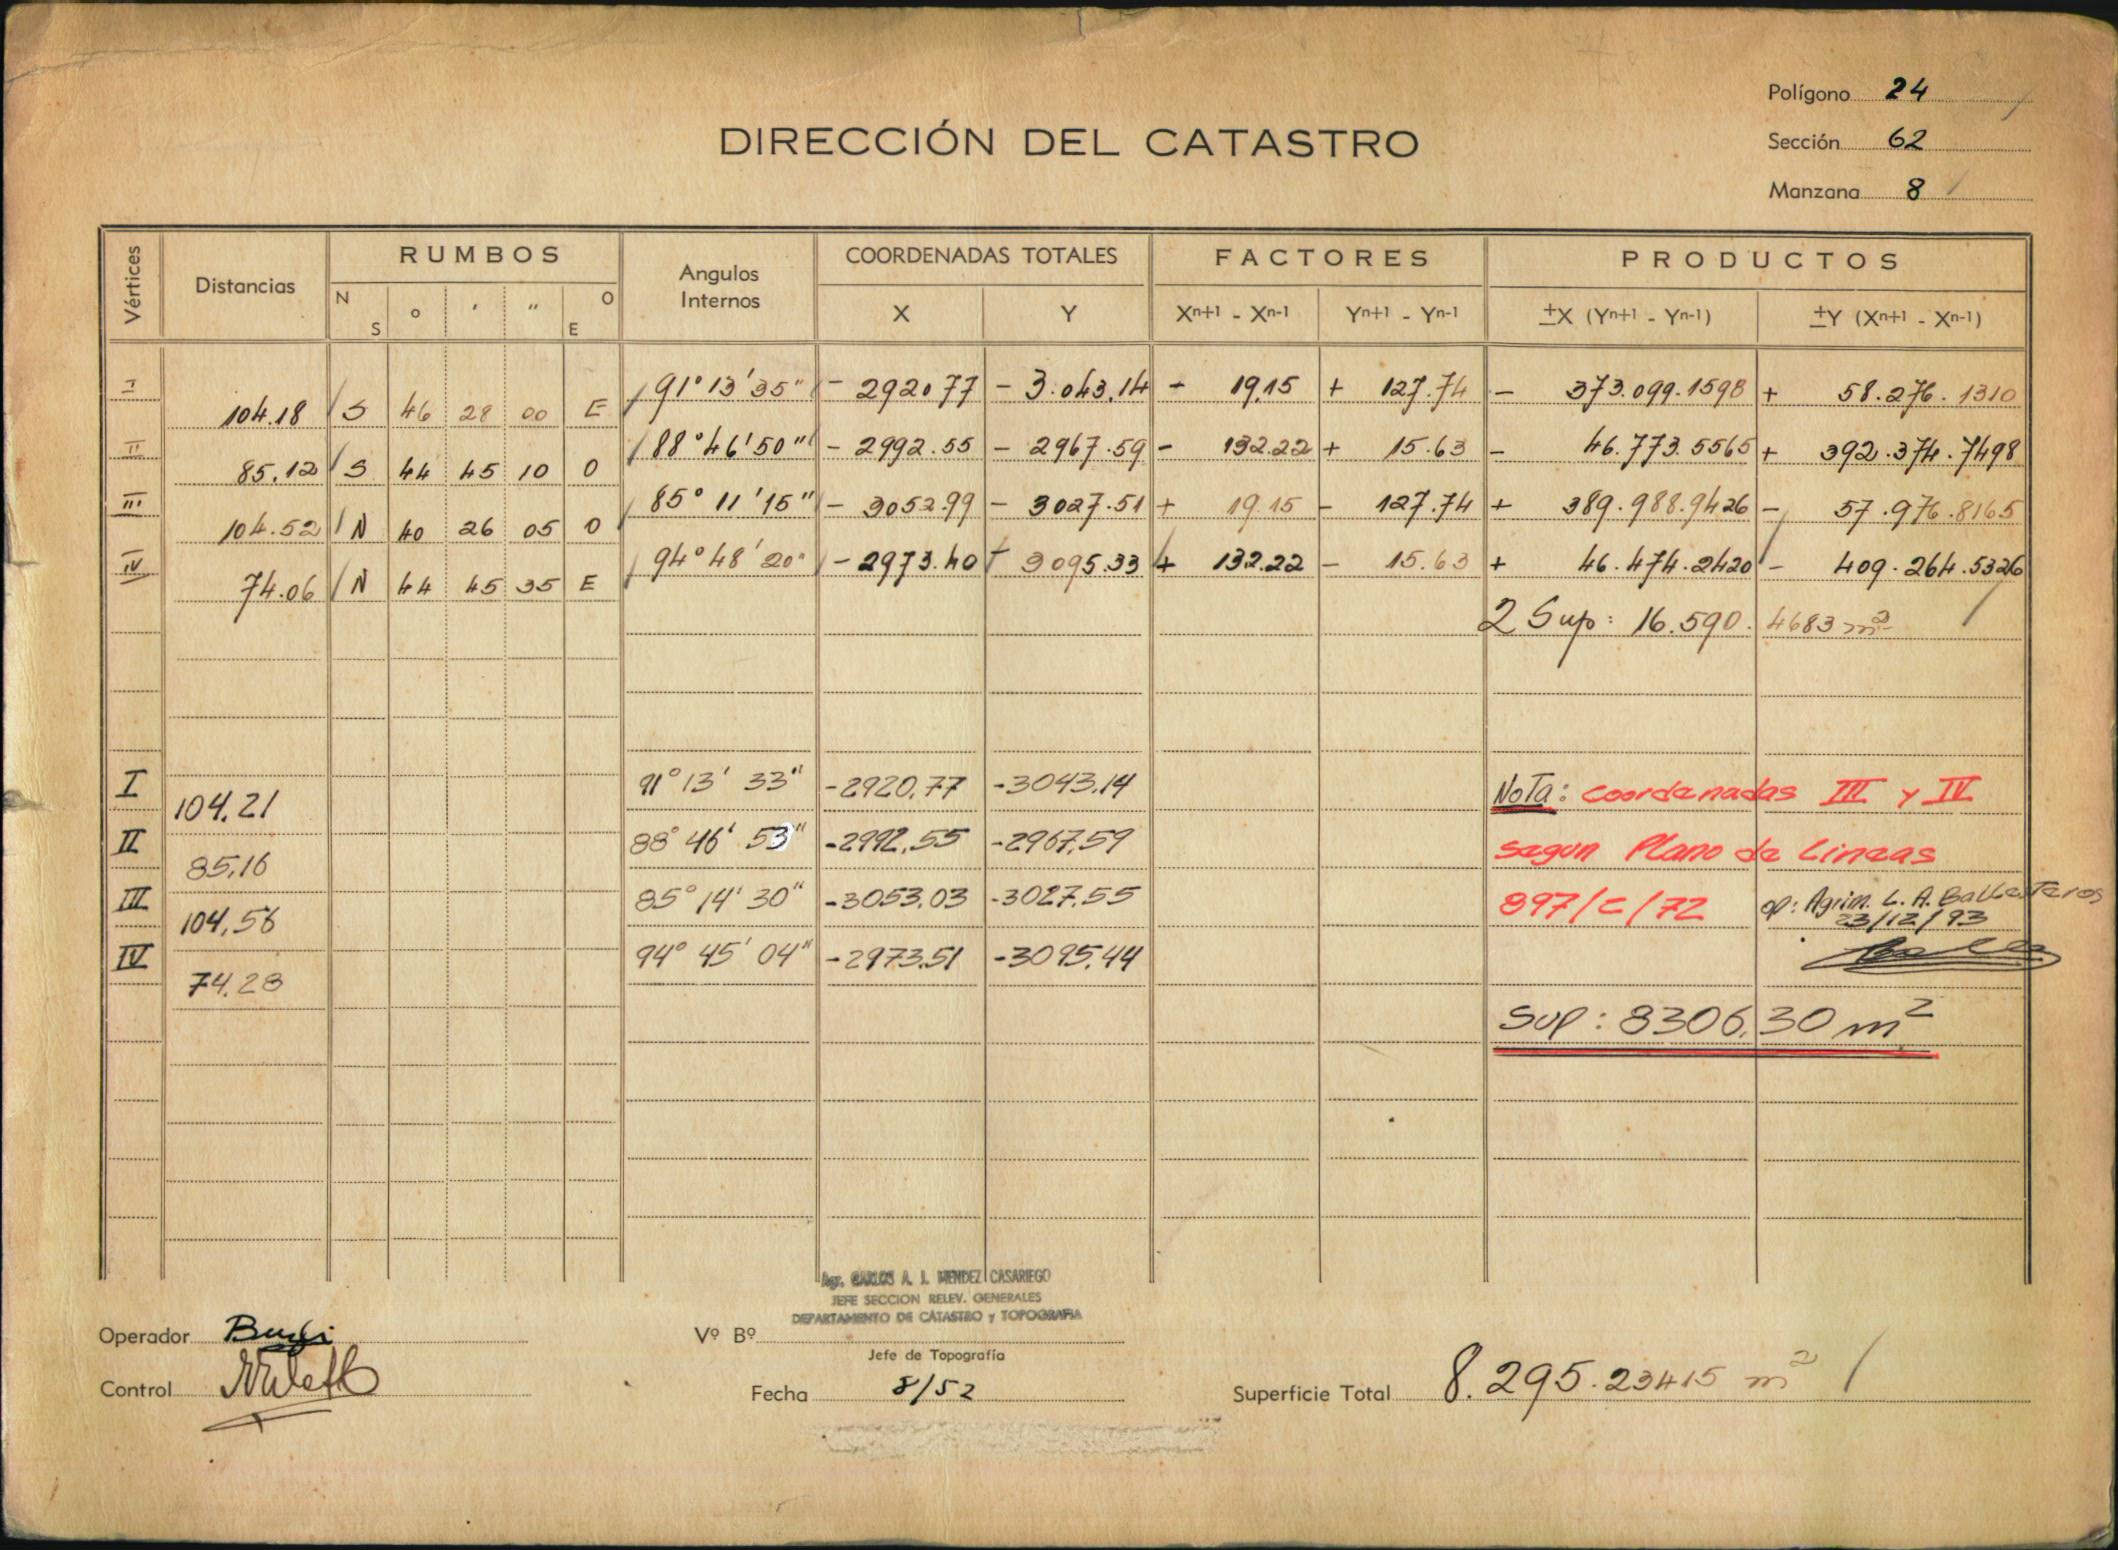 Polígono 24
DIRECCIÓN DEL CATASTRO
Sección 62
Manzana 8
Vértices Distancias RUMBOS Angulos Internos COORDENADAS TOTALES FACTORES PRODUCTOS
N S o ' " O E X Y Xn+1 - Xn-1 Yn+1 - Yn-1 ±X (Yn+1 - Yn-1) ±Y (Xn+1 - Xn-1)
I 91° 13' 35" - 2920.77 - 3.043.14 - 19.15 + 127.74 - 373.099.1598 + 58.276.1310
104.18 S 46 28 00 E
II 88° 46' 50" - 2992.55 - 2967.59 - 132.22 + 15.63 - 46.773.5565 + 392.374.7498
85.12 S 44 45 10 O
III 85° 11' 15" - 3052.99 - 3027.51 + 19.15 - 127.74 + 389.988.9426 - 57.976.8165
104.52 N 40 26 05 O
IV 94° 48' 20" - 2973.40 - 3095.33 + 132.22 - 15.63 + 46.474.2420 - 409.264.5326
74.06 N 44 45 35 E
2 Sup: 16.590.4683 m²
I 91° 13' 33" -2920,77 -3043,14 NOTA: coordenadas III y IV
104,21
II 88° 46' 53" -2992,55 -2967,59 segun Plano de Lineas
85,16
III 85° 14' 30" -3053,03 -3027,55 897/C/72 op: Agrim. L. A. Ballesteros
104,56 23/12/93
IV 94° 45' 04" -2973,51 -3095,44
74,28
Sup: 8306,30 m²
Agr. CARLOS A. I. MENDEZ CASARIEGO
JEFE SECCION RELEV. GENERALES
DEPARTAMENTO DE CATASTRO y TOPOGRAFIA
Operador Vº Bº
Jefe de Topografía
Control Fecha 8/52 Superficie Total 8.295.23415 m²